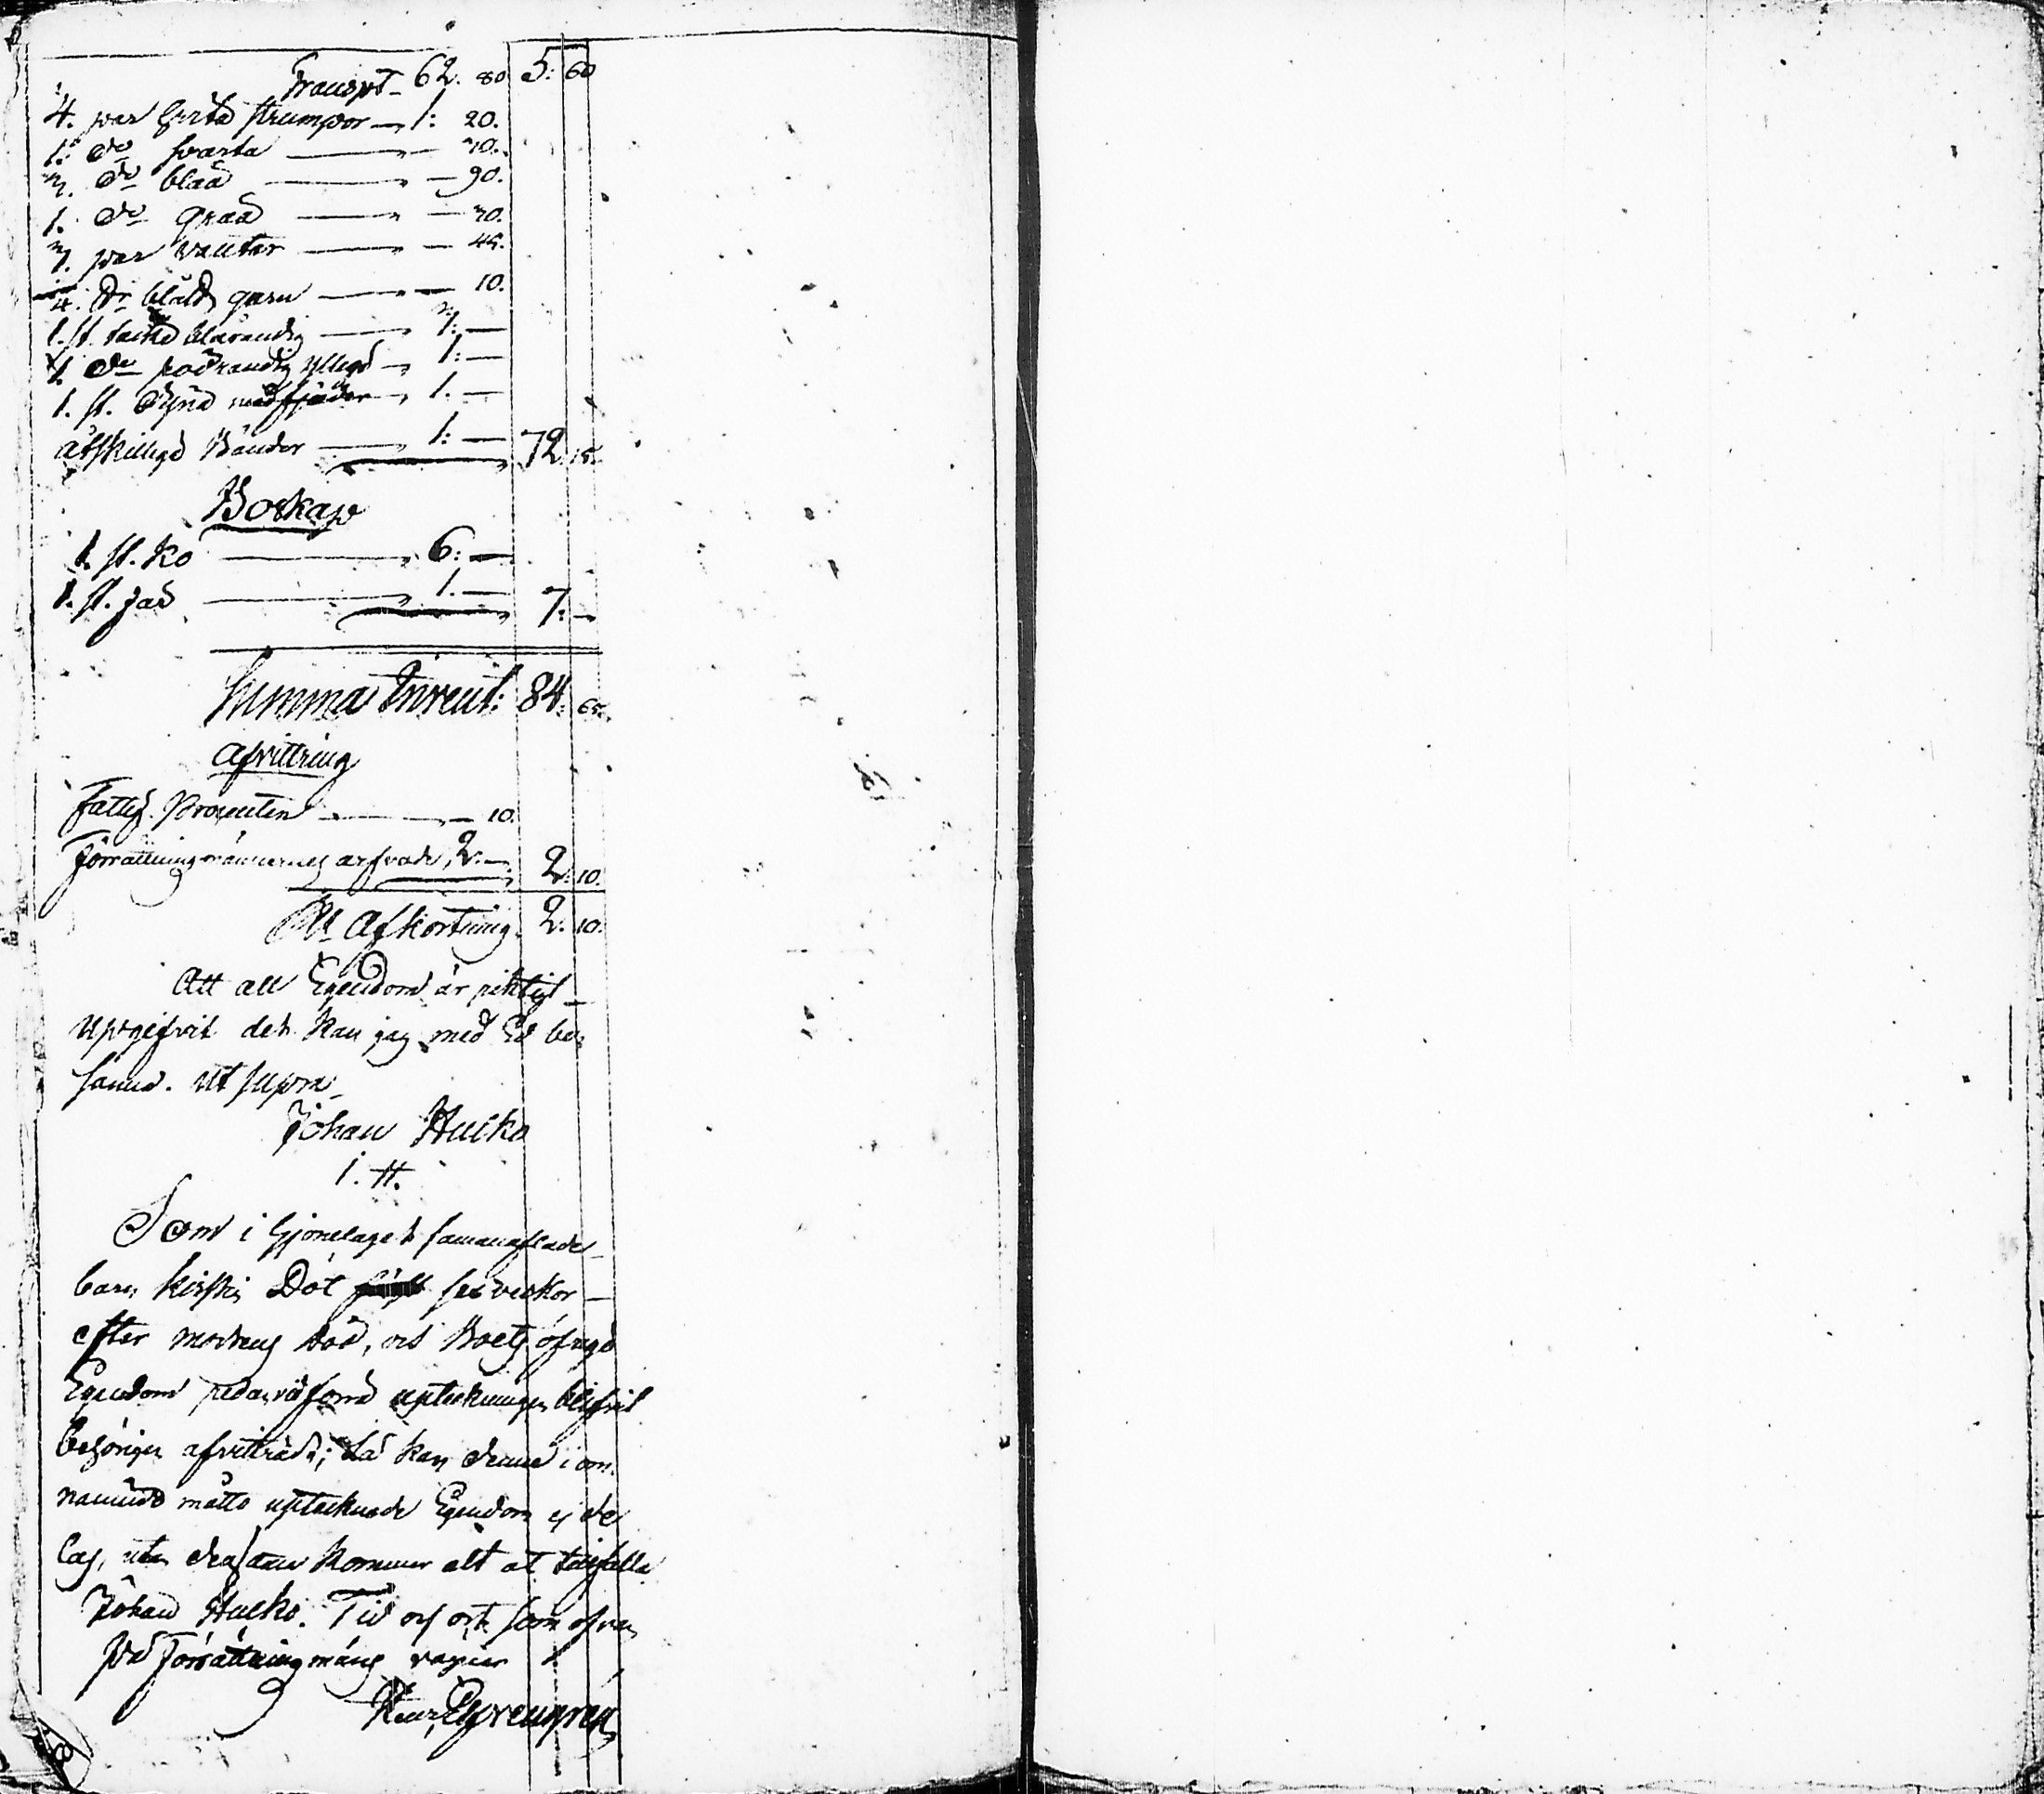 Transpt 62. 80 5: 60
4. par hvita strumpor 1: 20.
1. do svarta 30.
3. do blåa 90.
1. do gråa 30.
3. par vantar 45.
4. garn 10.
1. st. täcke blårandig 3:
1. do rödrandig 1:
1. st. Dyna med fjäder 1.
åtskillige Bänder 1: 72. 15.
Boskap
1. st. Ko 6:
1. st. får 1. 7:
Summa Invent: 84. 65.
Afvittring
Fattig. Procenten 10.
Förrättningsmännernes arfvode 2. 2. 10.
Afkortning. 2. 10.
Att all Egendom är riktigt
upgifvit det kan jag med Ed be-
sanna. ut supra
Johan Hucko
I. H.
Som i hjonelaget samanaflade
barn Kirstin Döt sex veckor
efter modrens död, och Boets öfrige
Egendom redan vid förra upteckningen blifvit
behörigen afvittrade; så kan denne i om-
nämnde måtto uptecknade Egendom ej de
las, utan densamma kommer alt at tilfalla
Johan Hucko. Tid och ort som ofvan
På Förrättningmäns vägnar